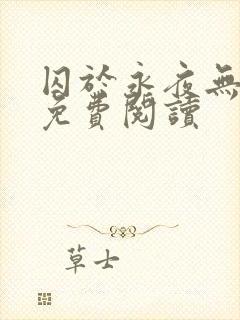 囚於永夜無
免費閱讀
草士